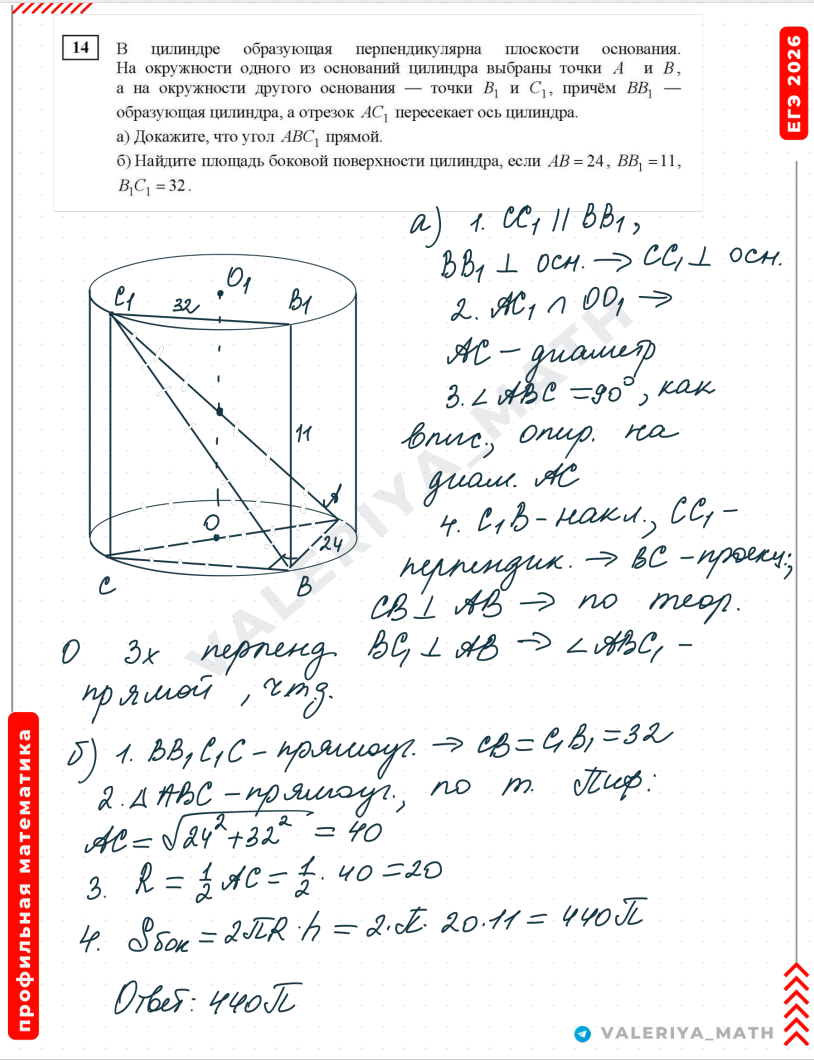 ЕГЭ 2026
14
В цилиндре образующая перпендикулярна плоскости основания.
На окружности одного из оснований цилиндра выбраны точки A и B,
а на окружности другого основания — точки B₁ и C₁, причём BB₁ —
образующая цилиндра, а отрезок AC₁ пересекает ось цилиндра.
а) Докажите, что угол ABC₁ прямой.
б) Найдите площадь боковой поверхности цилиндра, если AB = 24, BB₁ = 11,
B₁C₁ = 32.
а) 1. CC₁ || BB₁,
BB₁ ⊥ осн. → CC₁ ⊥ осн.
2. AC₁ ∩ OO₁ →
AC – диаметр
3. ∠ABC = 90°, как
впис., опир. на
диам. AC
4. C₁B – накл., CC₁ –
перпендик. → BC – проекц.;
CB ⊥ AB → по теор.
О 3х перпенд. BC₁ ⊥ AB → ∠ABC₁ –
прямой, чтд.
C₁
32
O₁
B₁
11
A
O
24
C
B
б) 1. BB₁C₁C – прямоуг. → CB = C₁B₁ = 32
2. △ABC – прямоуг., по т. Пиф:
AC = √24² + 32² = 40
3. R = 1/2 AC = 1/2 · 40 = 20
4. Sбок = 2πR · h = 2 · π · 20 · 11 = 440π
Ответ: 440π
профильная математика
VALERIYA_MATH
VALERIYA_MATH